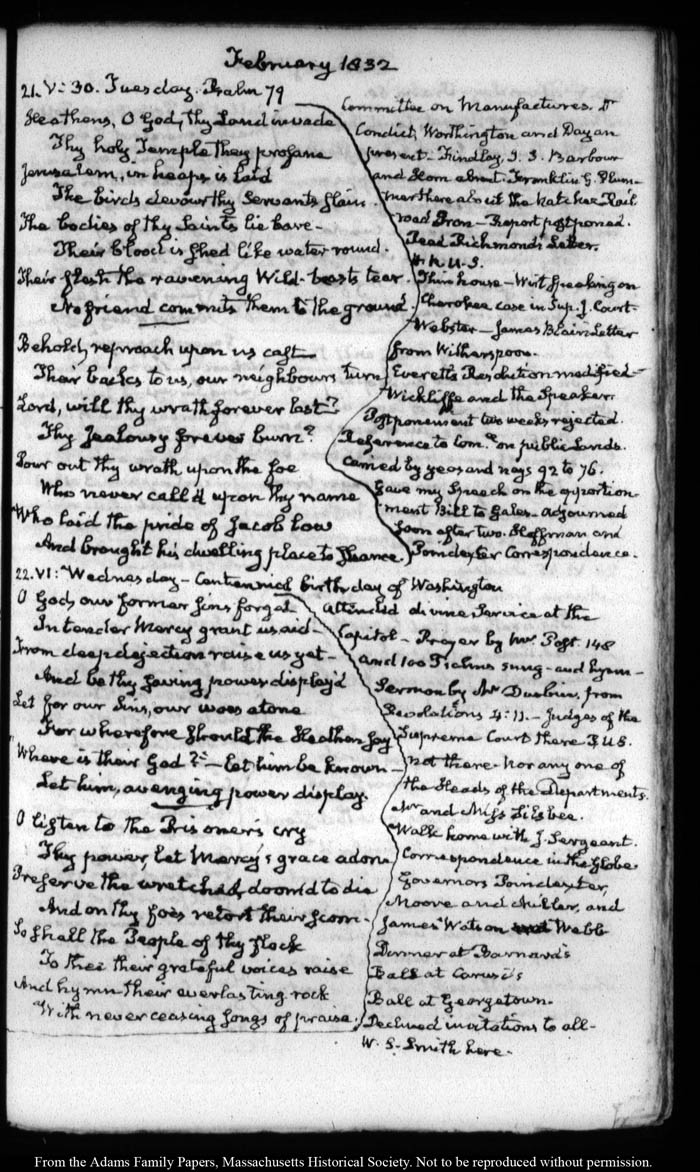 February 1832
21. V:30. Tuesday. Psalm 79
Heathens, O God, thy Land invade
Thy holy Temple they profane
Jerusalem, in heaps is laid
The birds devour thy Servants slain.
The bodies of thy Saints lie bare-
Their blood is shed like water round.
Their flesh the ravening Wild-beasts tear.
No friend commits them to the ground
Behold, reproach upon us cast
Their backs to us, our neighbours turn
Lord, will thy wrath forever last?
Thy Jealousy forever burn?
Pour out thy wrath upon the foe
Who never call'd upon thy name
Who laid the pride of Jacob low
And brought his dwelling place to Shame.
Committee on Manufactures. Dr
Condict, Worthington and Dayan
present- Findlay, J. S. Barbour
and Horn absent. Franklin G. Plum-
mer there about the Natchez Rail
road Iron- Report postponed.
Read Richmond's Letter.
H.R U.S.
Thin house- Wirt speaking on
Cherokee case in Sup. J. Court-
Webster- James Blair Letter
from Witherspoon.
Everett's Resolution modified-
Wickliffe and the Speaker.
Postponement two weeks rejected.
Reference to Com.ee on public Lands.
carried by yeas and nays 92 to 76.
Gave my Speech on the apportion-
ment Bill to Gales- adjourned
soon after two. Hoffman and
Poindexter Correspondence.
22. VI: Wednesday- Centennial birthday of Washington
O God, our former sins forget
In tender Mercy grant us aid-
From deep dejection raise us yet-
And be thy saving power display'd
Let for our Sins, our woes atone
For wherefore should the Heathen say
Where is their God?- let him be known-
Let him, avenging power display
O listen to the Prisoner's cry
Thy power, let Mercy's grace adorn
Preserve the wretched, doom'd to die
And on thy foes retort their scorn-
So shall the People of thy flock
To thee their grateful voices raise
And hymn their everlasting rock
With never ceasing songs of praise.
Attended divine Service at the
Capitol- Prayer by Mr. Post. 148
and 100 Psalms sung- and hymn-
Sermon by Mr Durbin, from
Revelations 4:11.- Judges of the
Supreme Court there S.U.S.
not there. Nor any one of
the Heads of the Departments.
Mr and Miss Silsbee.
Walk home with J. Sergeant.
Correspondence in the Globe
Governors Poindexter,
Moore and Miller, and
James Watson Webb
Dinner at Barnard's
Ball at Carusi's
Ball at Georgetown-
Declined invitations to all-
W. S. Smith here.
From the Adams Family Papers, Massachusetts Historical Society. Not to be reproduced without permission.